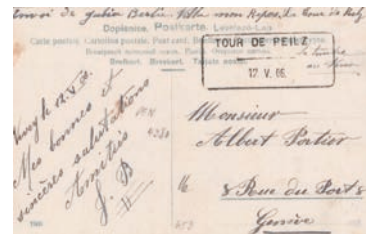 Envoi de Julia Bertie. Villa mon Repos, La Tour de Peilz
Dopisnica. Postkarte. Levelező-Lap
Carte postale. Cartolina postale. Post card.
Brefkort. Brevkort.
TOUR DE PEILZ
12 V. 06.
le timbre
au
Vevey le 12.V.06.
Mes bonnes et
sincères salutations
Amitiés
J. B
Monsieur
Albert Portier
8 Rue du Port 8
Genève